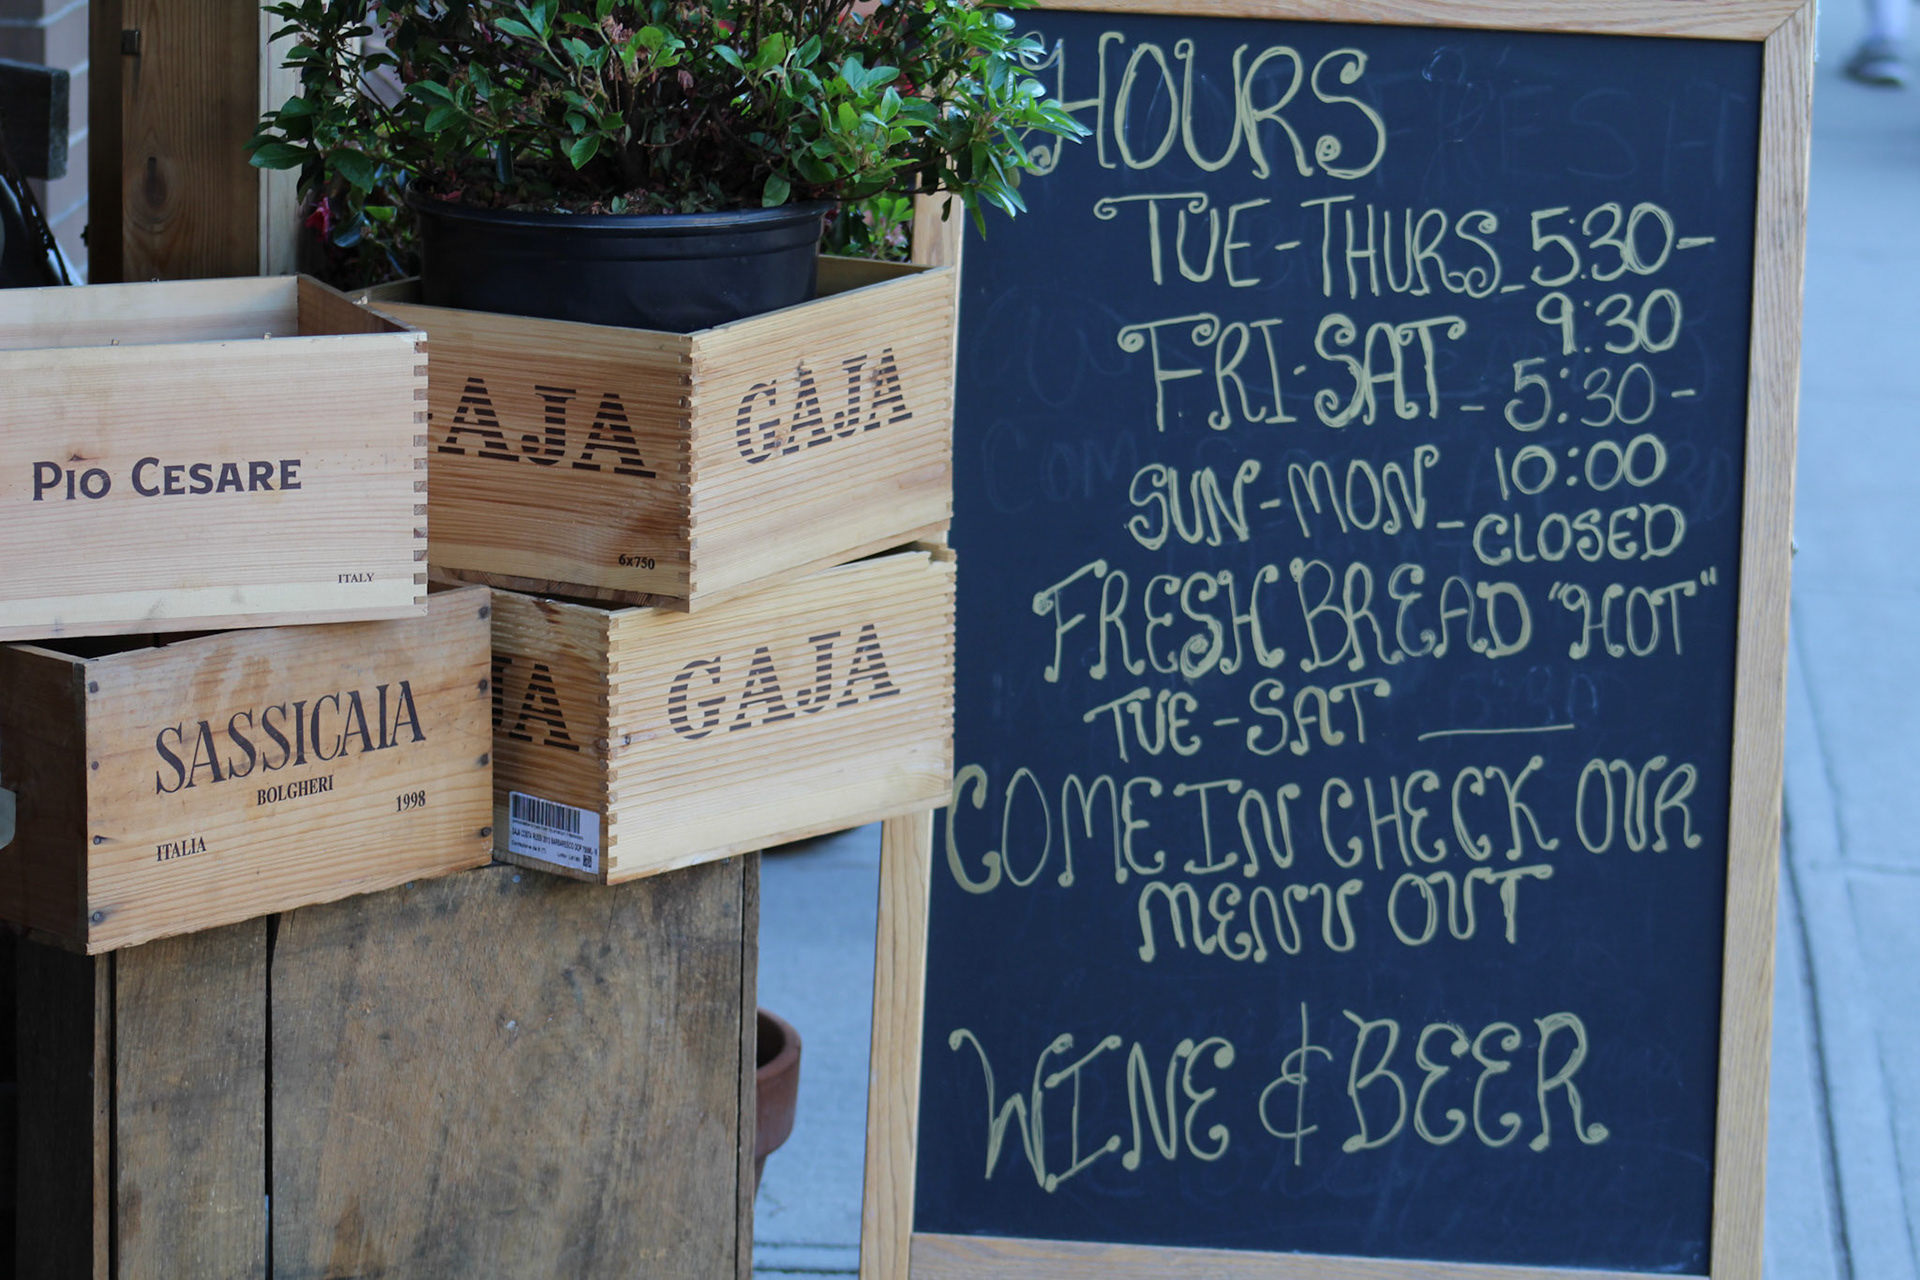 PIO CESARE
ITALY
AJA
6x750
GAJA
SASSICAIA
BOLGHERI
1998
ITALIA
JA
GAJA
HOURS
TUE-THURS-5:30-
9:30
FRI-SAT-5:30-
10:00
SUN-MON-CLOSED
FRESH BREAD "HOT"
TUE-SAT
COME IN CHECK OUR
MENU OUT
WINE & BEER